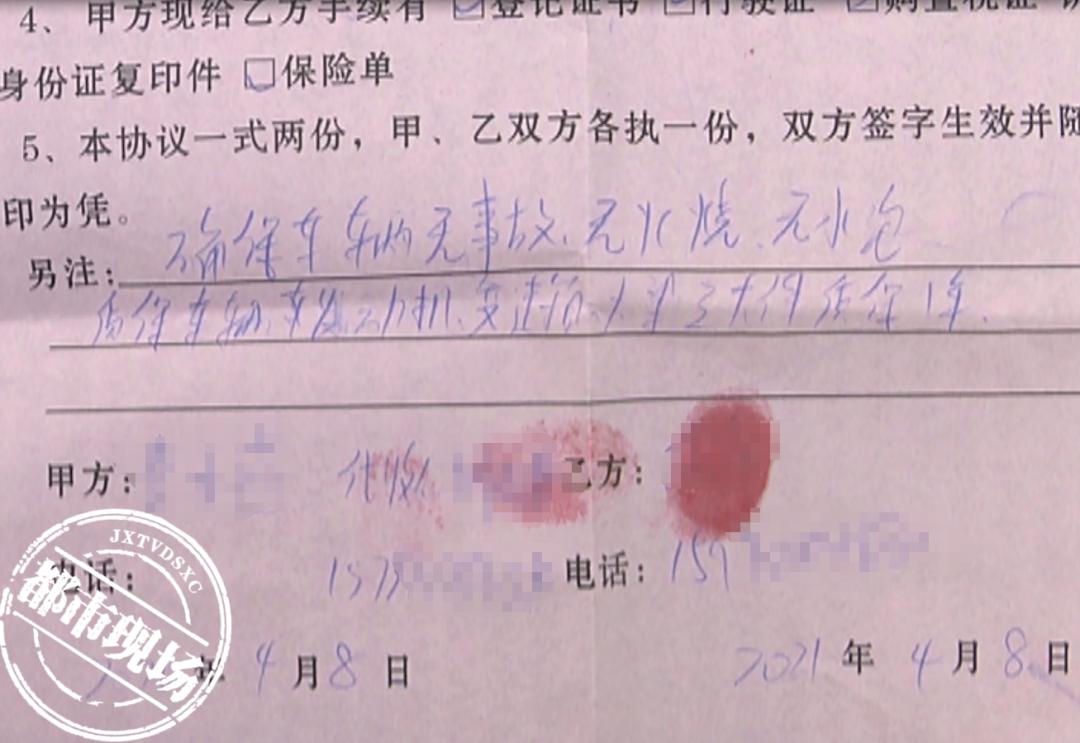 4、甲方现给乙方手续有 ☑登记证书 ☑行驶证 ☑购置税证
身份证复印件 □保险单
5、本协议一式两份，甲、乙双方各执一份，双方签字生效并随
印为凭。
另注：确保车辆无事故、无火烧、无水泡
质保车辆、发动机、变速箱、 三大件质保1年.
甲方： 代收 乙方：
电话： 157 电话：157
年4月8日 2021年4月8日
JXTVDSXC
都市现场